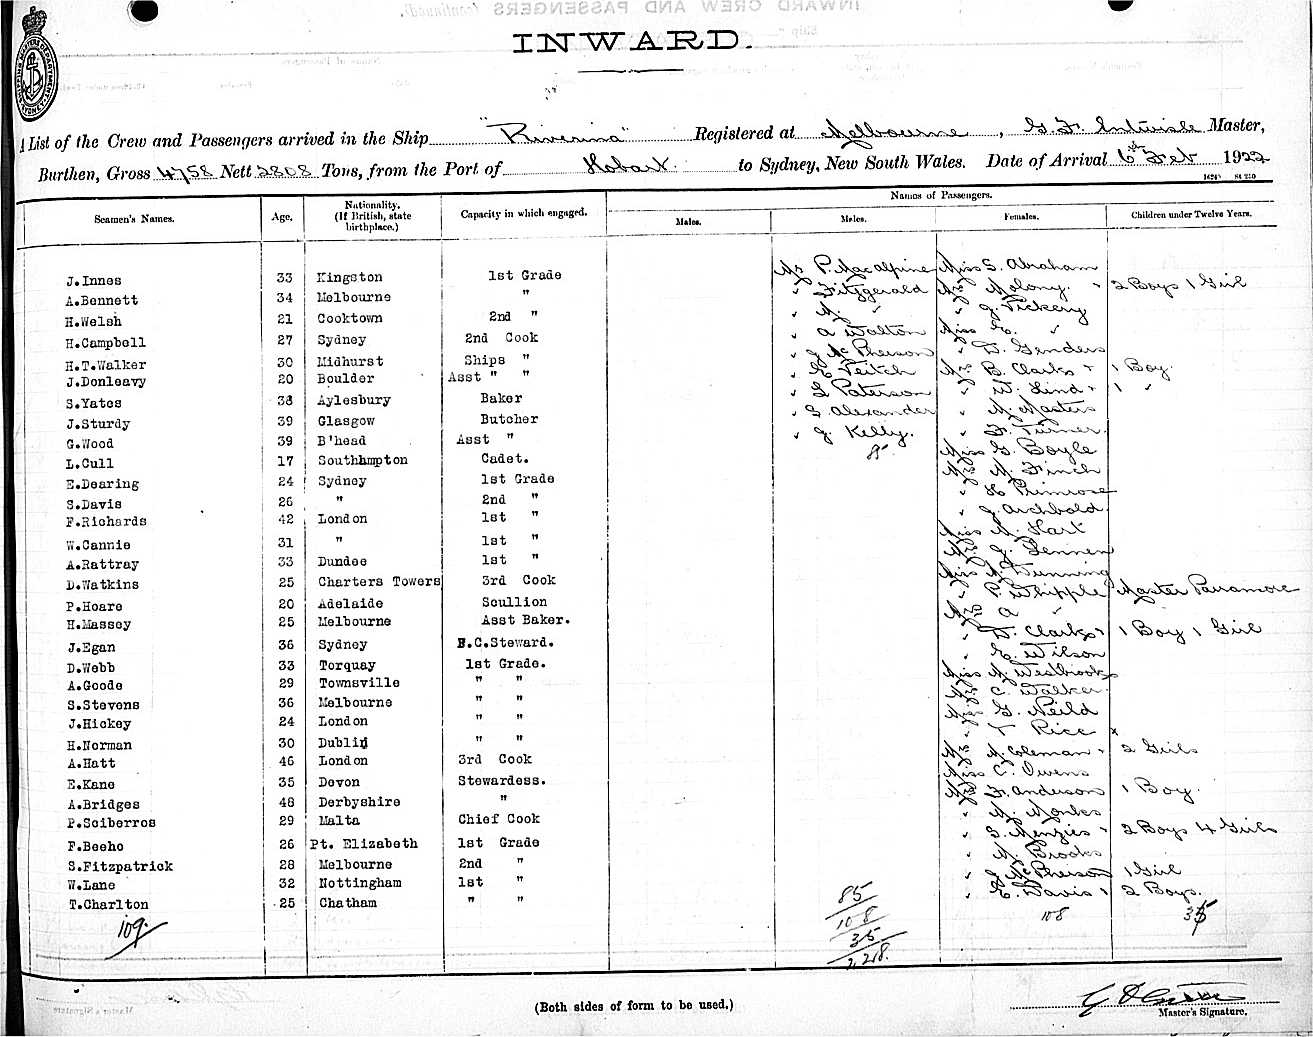 INWARD.
A List of the Crew and Passengers arrived in the Ship "Riverina" Registered at Melbourne, G. F. Entwisle Master,
Burthen, Gross 4758 Nett 2808 Tons, from the Port of Hobart. to Sydney, New South Wales. Date of Arrival 6th Feb 1922
Seamen's Names. Age. Nationality. (If British, state birthplace.) Capacity in which engaged. Names of Passengers.
Males. Males. Females. Children under Twelve Years.
J.Innes 33 Kingston 1st Grade
A.Bennett 34 Melbourne "
H.Welsh 21 Cooktown 2nd "
H.Campbell 27 Sydney 2nd Cook
H.T.Walker 30 Midhurst Ships "
J.Donleavy 20 Boulder Asst " "
S.Yates 38 Aylesbury Baker
J.Sturdy 39 Glasgow Butcher
G.Wood 39 B'head Asst "
L.Cull 17 Southhmpton Cadet.
E.Dearing 24 Sydney 1st Grade
S.Davis 26 " 2nd "
F.Richards 42 London 1st "
W.Cannie 31 " 1st "
A.Rattray 33 Dundee 1st "
D.Watkins 25 Charters Towers 3rd Cook
P.Hoare 20 Adelaide Scullion
H.Massey 25 Melbourne Asst Baker.
J.Egan 36 Sydney B.C.Steward.
D.Webb 33 Torquay 1st Grade.
A.Goode 29 Townsville " "
S.Stevens 36 Melbourne " "
J.Hickey 24 London " "
H.Norman 30 Dublin " "
A.Hatt 46 London 3rd Cook
E.Kane 35 Devon Stewardess.
A.Bridges 48 Derbyshire "
P.Sciberros 29 Malta Chief Cook
F.Beeho 26 Pt. Elizabeth 1st Grade
S.Fitzpatrick 28 Melbourne 2nd "
W.Lane 32 Nottingham 1st "
T.Charlton 25 Chatham " "
109.
Mr P. Macalpine
" Fitzgerald
" M. "
" A Walton
" J McPherson
" E Veitch
" L Paterson
" G Alexander
" J. Kelly.
85
108
35
228.
Miss S. Abraham
Mrs Molony. " 2 Boys 1 Girl
" J. Vickery
Miss E. "
" D. Genders
Mrs B. Clarke " 1 Boy.
" W. Lind " 1 "
" M. Masters
" F. Turner.
Miss G. Boyle
Mrs M. Finch
" L Primrose
" J. Archbold.
Miss M. Hart
Mrs J. Bennett
Miss Dunning
" P. Whipple Master Parramore
Mrs A "
" D. Clarke " 1 Boy 1 Girl
" E. Wilson
Miss M. Westbrook
Mrs C. Walker
Miss G. Neild
" Rice
Mrs M. Coleman " 2 Girls
Miss C. Owens
Mrs F. Anderson 1 Boy.
" M. Monks
" S. Menzies " 2 Boys 4 Girls
" M. Brooks
" J McPherson 1 Girl
" E. Davis " 2 Boys.
108 35
(Both sides of form to be used.)
Master's Signature.